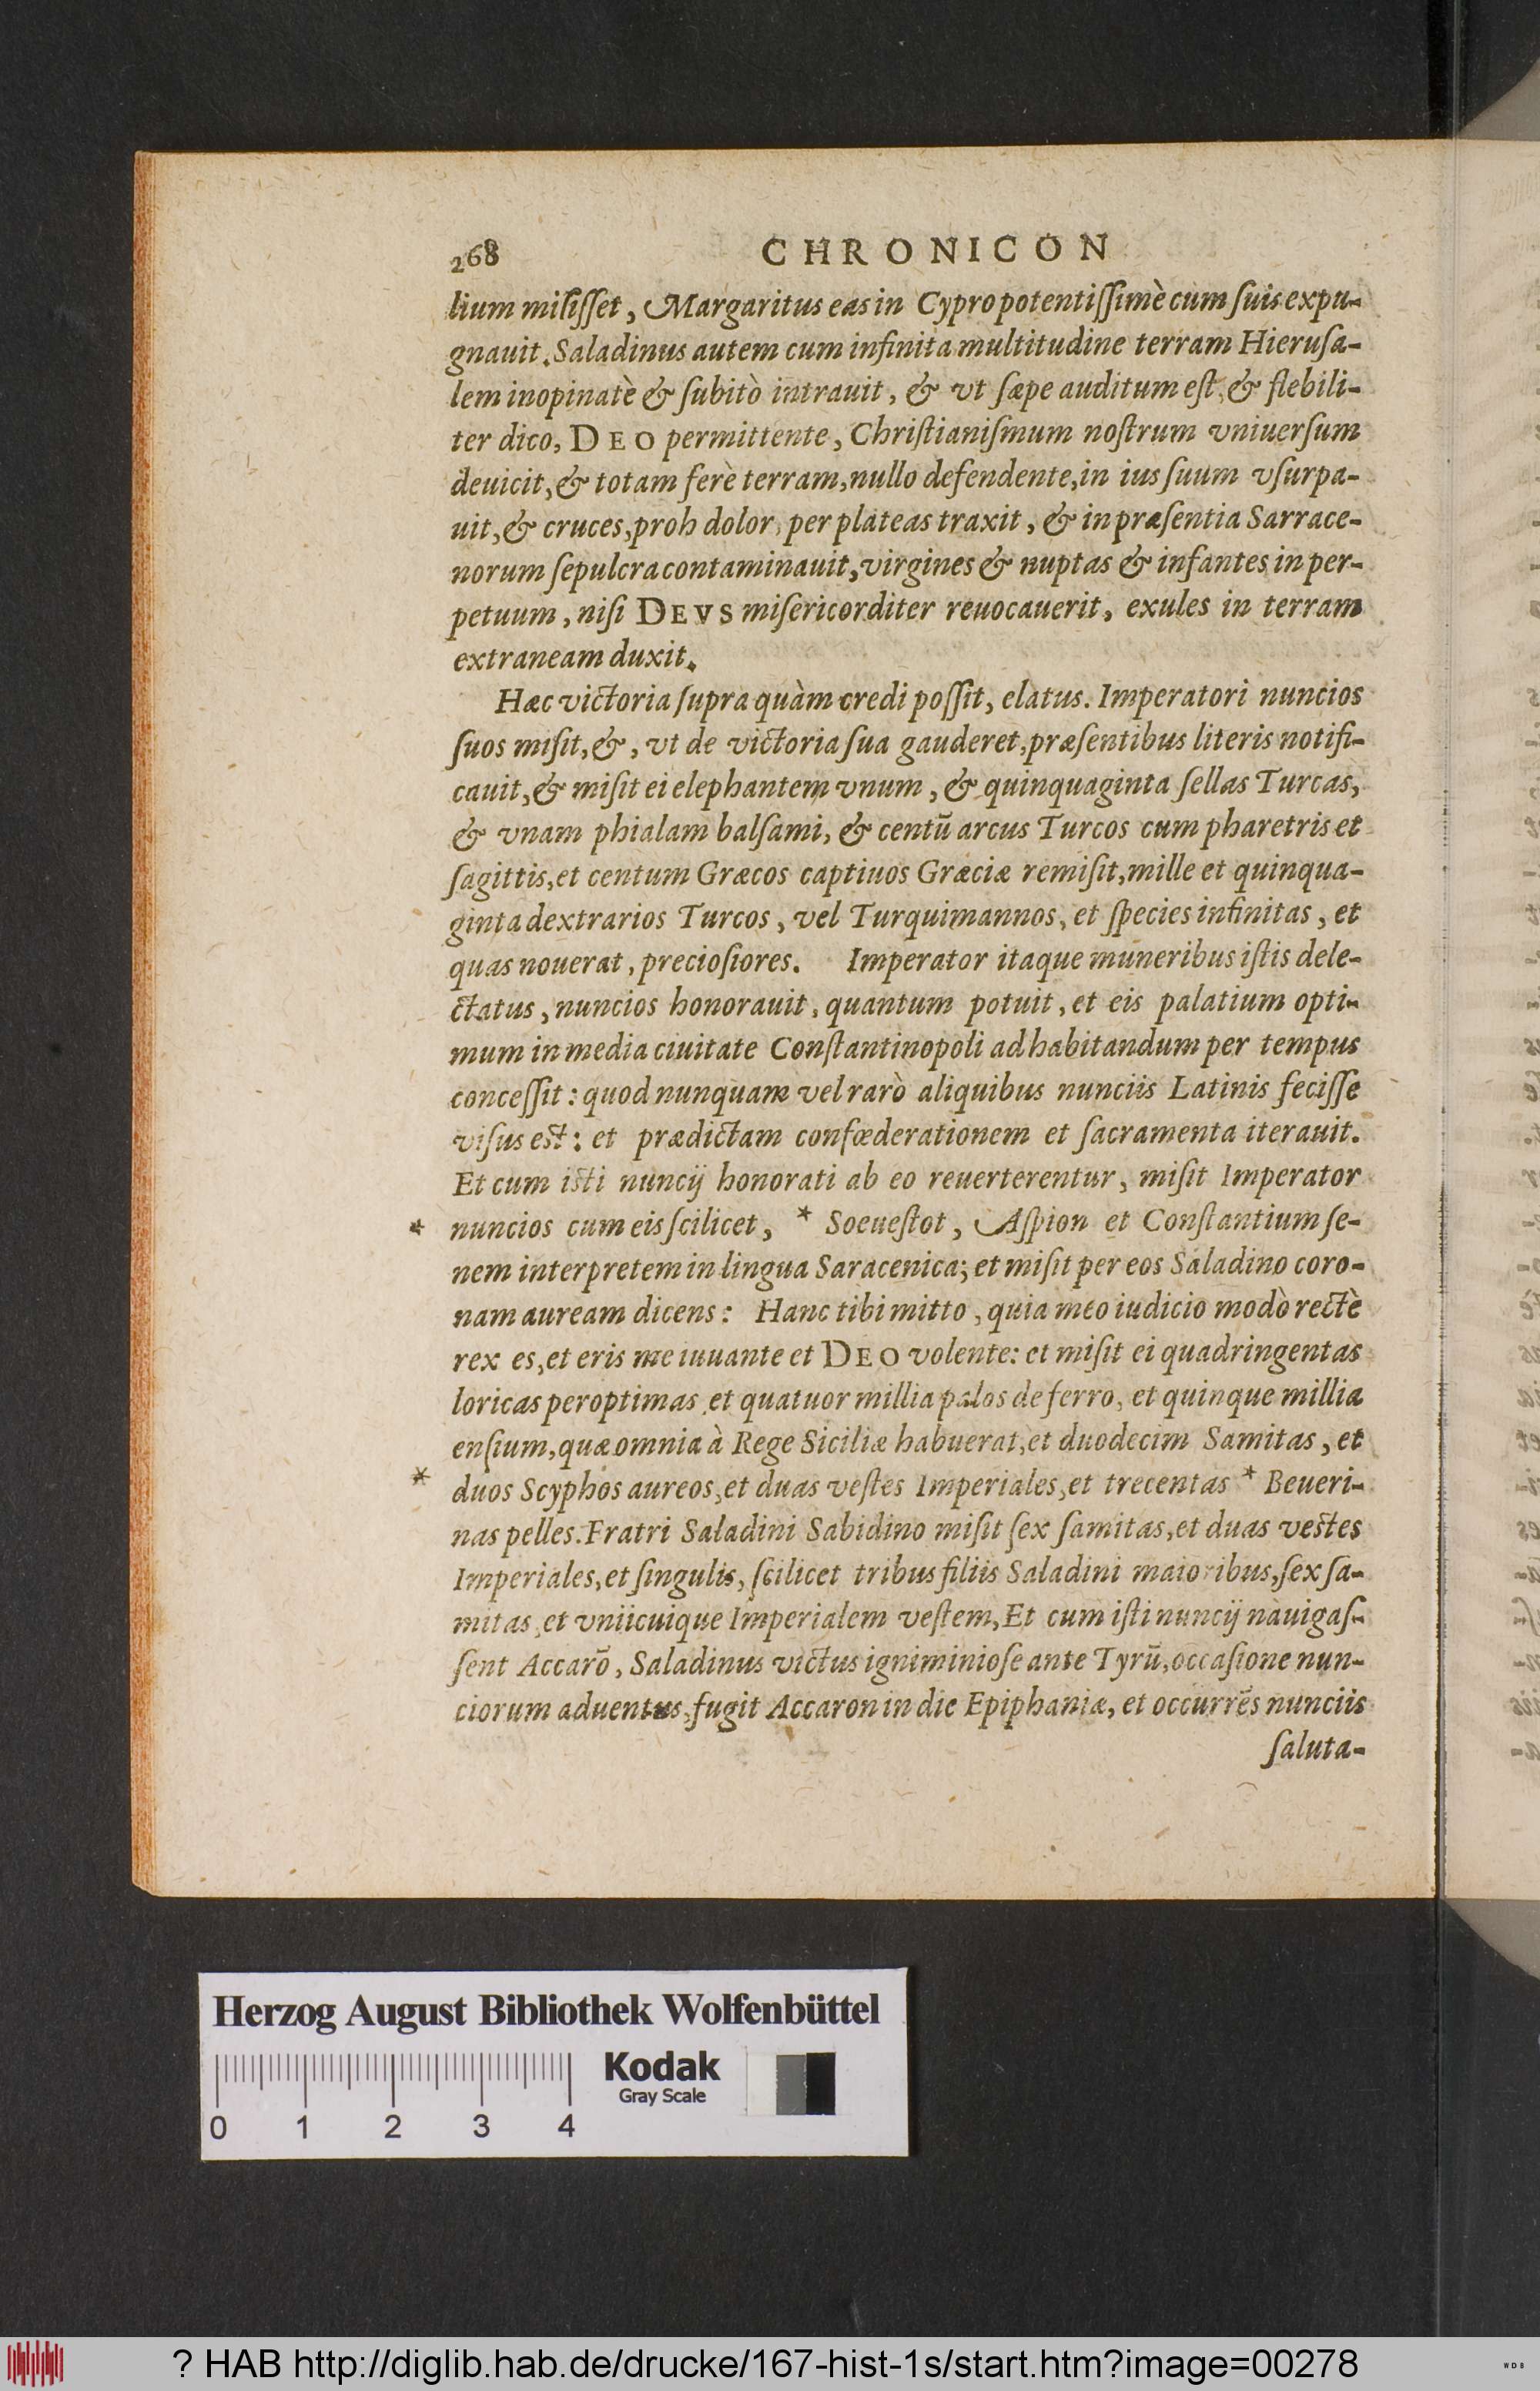 268 CHRONICON
lium misisset, Margaritus eas in Cypro potentissimè cum suis expu-
gnauit. Saladinus autem cum infinita multitudine terram Hierusa-
lem inopinatè & subitò intrauit, & vt sæpe auditum est, & flebili-
ter dico, DEO permittente, Christianismum nostrum vniuersum
deuicit, & totam ferè terram, nullo defendente, in ius suum vsurpa-
uit, & cruces, proh dolor, per plateas traxit, & in præsentia Sarrace-
norum sepulcra contaminauit, virgines & nuptas & infantes in per-
petuum, nisi DEVS misericorditer reuocauerit, exules in terram
extraneam duxit.
Hæc victoria supra quàm credi possit, elatus. Imperatori nuncios
suos misit, &, vt de victoria sua gauderet, præsentibus literis notifi-
cauit, & misit ei elephantem vnum, & quinquaginta sellas Turcas,
& vnam phialam balsami, & centū arcus Turcos cum pharetris et
sagittis, et centum Græcos captiuos Græciæ remisit, mille et quinqua-
ginta dextrarios Turcos, vel Turquimannos, et species infinitas, et
quas nouerat, preciosiores. Imperator itaque muneribus istis dele-
ctatus, nuncios honorauit, quantum potuit, et eis palatium opti-
mum in media ciuitate Constantinopoli ad habitandum per tempus
concessit: quod nunquam vel rarò aliquibus nunciis Latinis fecisse
visus est: et prædictam confœderationem et sacramenta iterauit.
Et cum isti nuncij honorati ab eo reuerterentur, misit Imperator
* nuncios cum eis scilicet, * Soeuestot, Aspion et Constantium se-
nem interpretem in lingua Saracenica; et misit per eos Saladino coro-
nam auream dicens: Hanc tibi mitto, quia meo iudicio modò rectè
rex es, et eris me iuuante et DEO volente: et misit ei quadringentas
loricas peroptimas, et quatuor millia palos de ferro, et quinque millia
ensium, quæ omnia à Rege Siciliæ habuerat, et duodecim Samitas, et
* duos Scyphos aureos, et duas vestes Imperiales, et trecentas * Beueri-
nas pelles. Fratri Saladini Sabidino misit sex samitas, et duas vestes
Imperiales, et singulis, scilicet tribus filiis Saladini maioribus, sex sa-
mitas, et vniicuique Imperialem vestem, Et cum isti nuncij nauigas-
sent Accarō, Saladinus victus igniminiose ante Tyrū, occasione nun-
ciorum aduentus, fugit Accaron in die Epiphaniæ, et occurrēs nunciis
saluta-
Herzog August Bibliothek Wolfenbüttel
Kodak
Gray Scale
0 1 2 3 4
? HAB http://diglib.hab.de/drucke/167-hist-1s/start.htm?image=00278
WDB